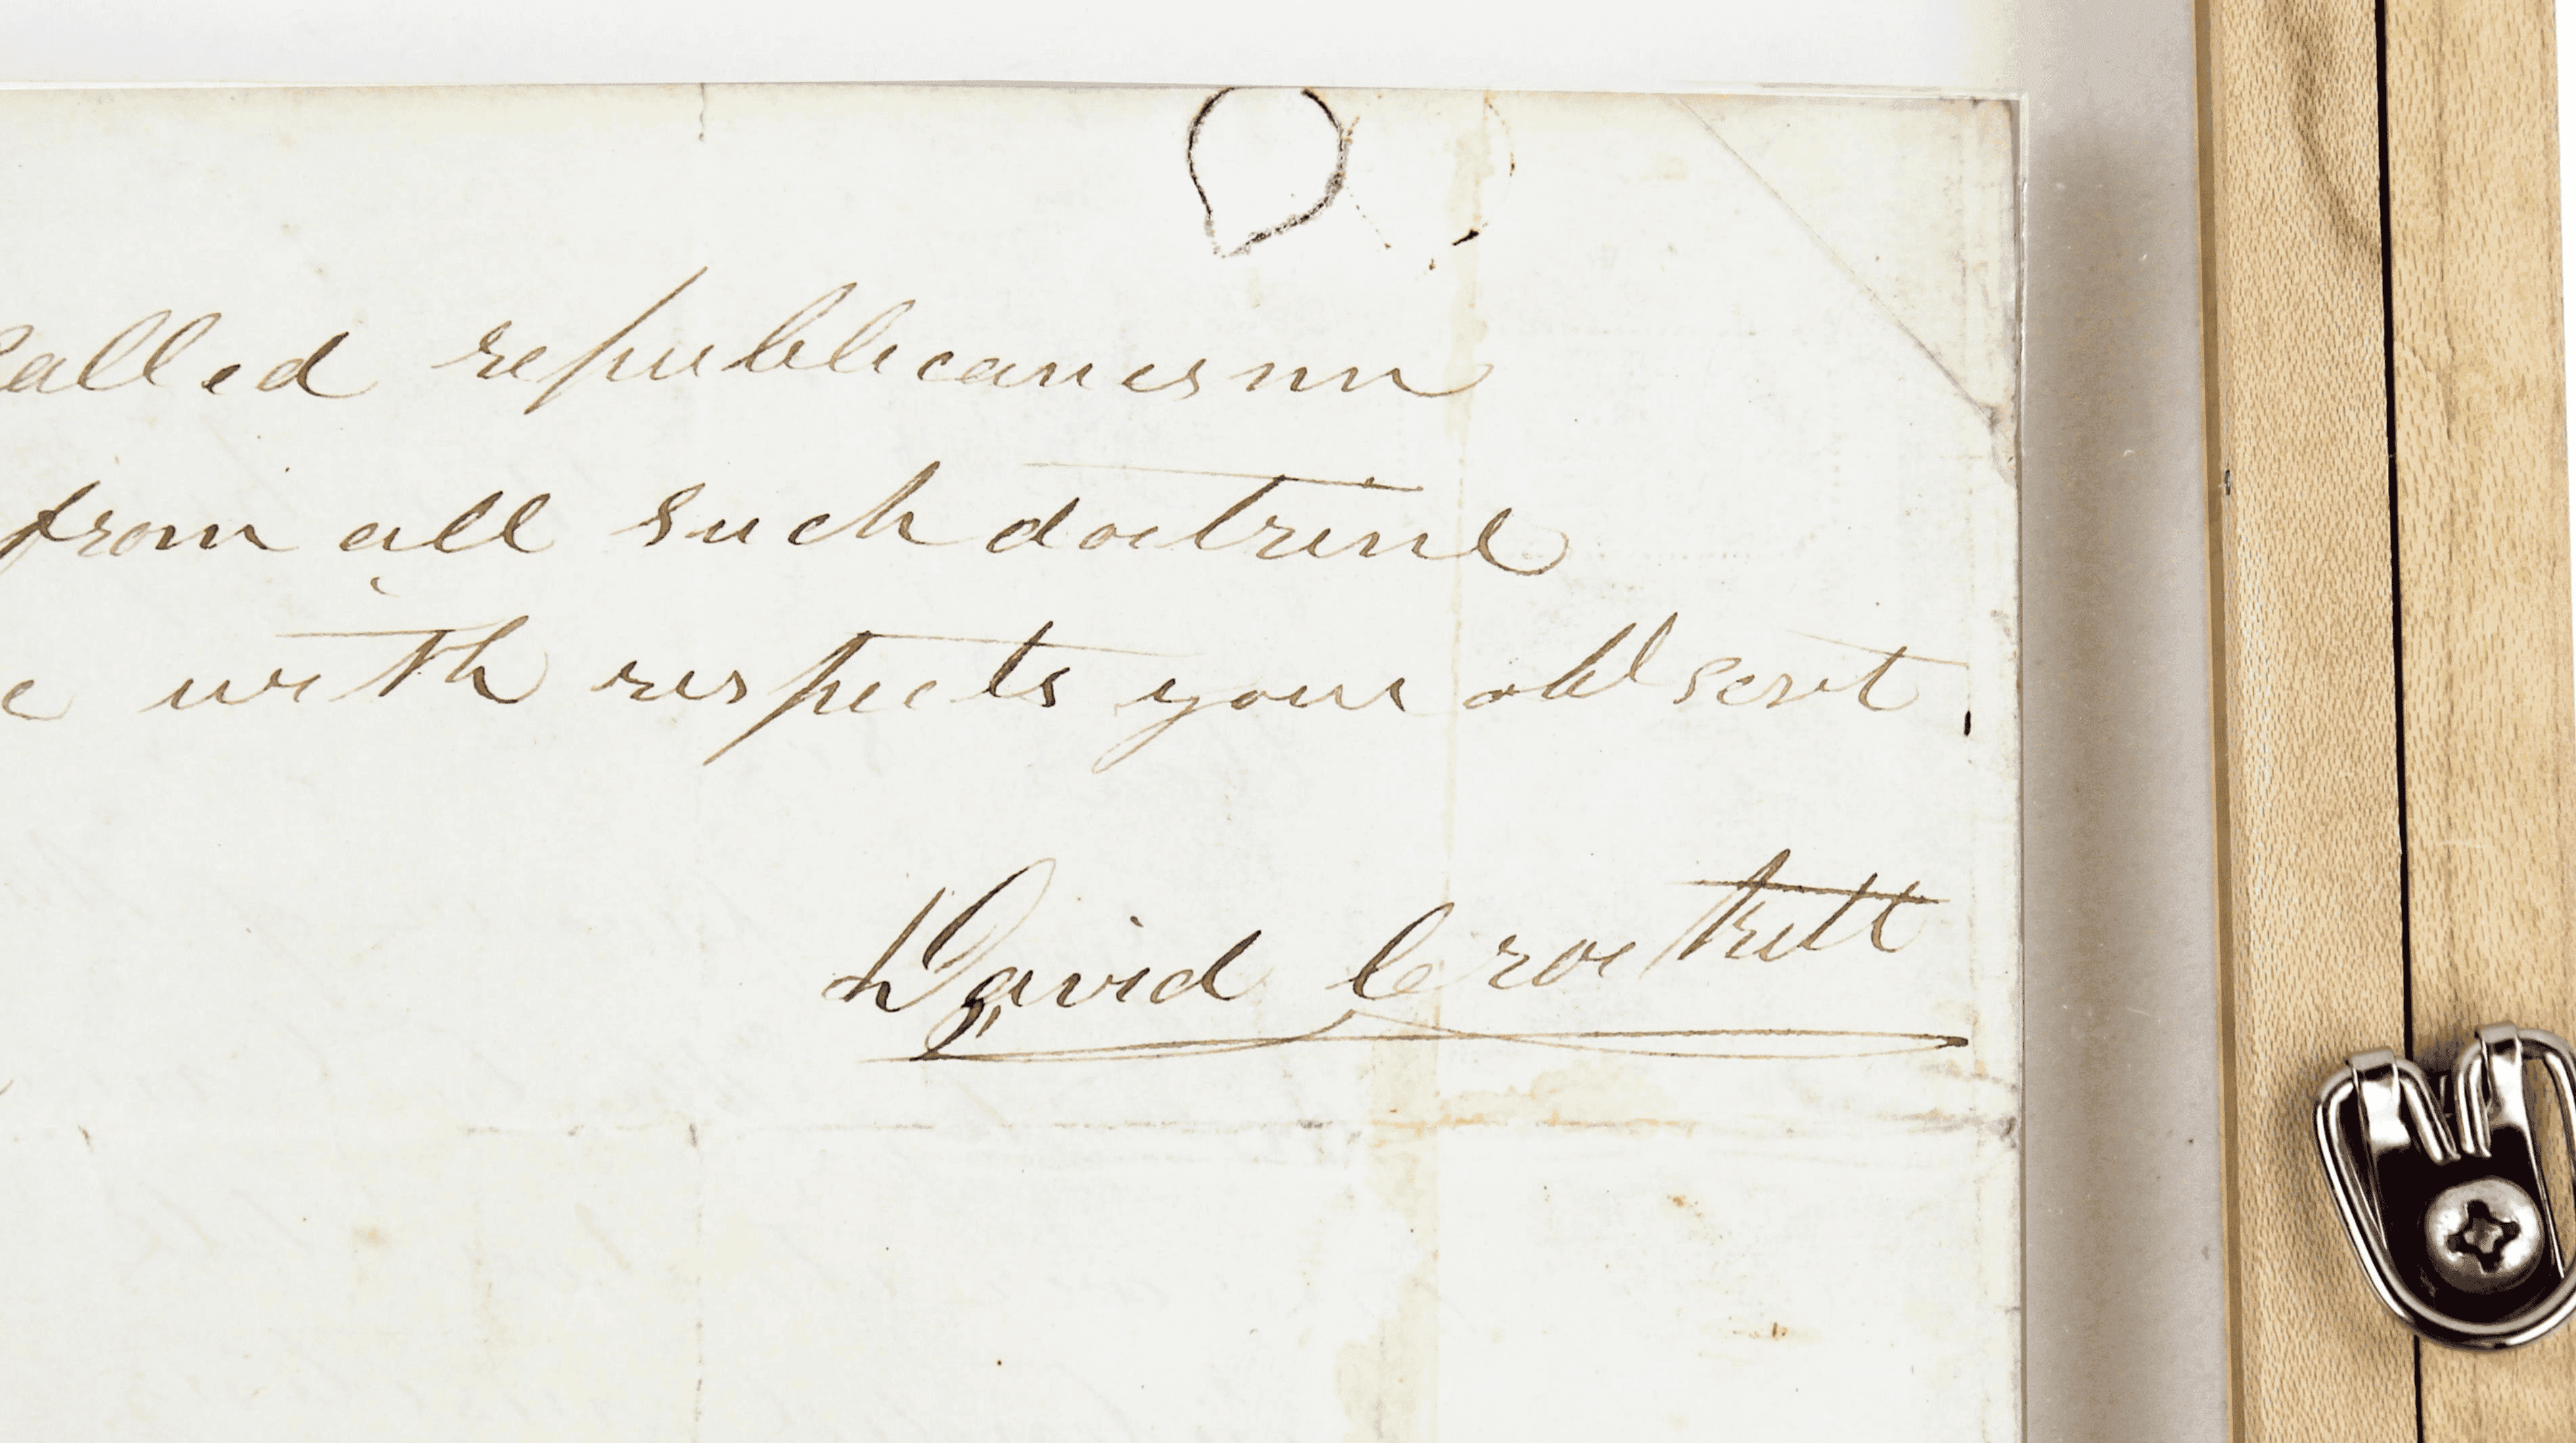 called republicanism
from all such doctrine
e with respects your obt servt
David Crockett